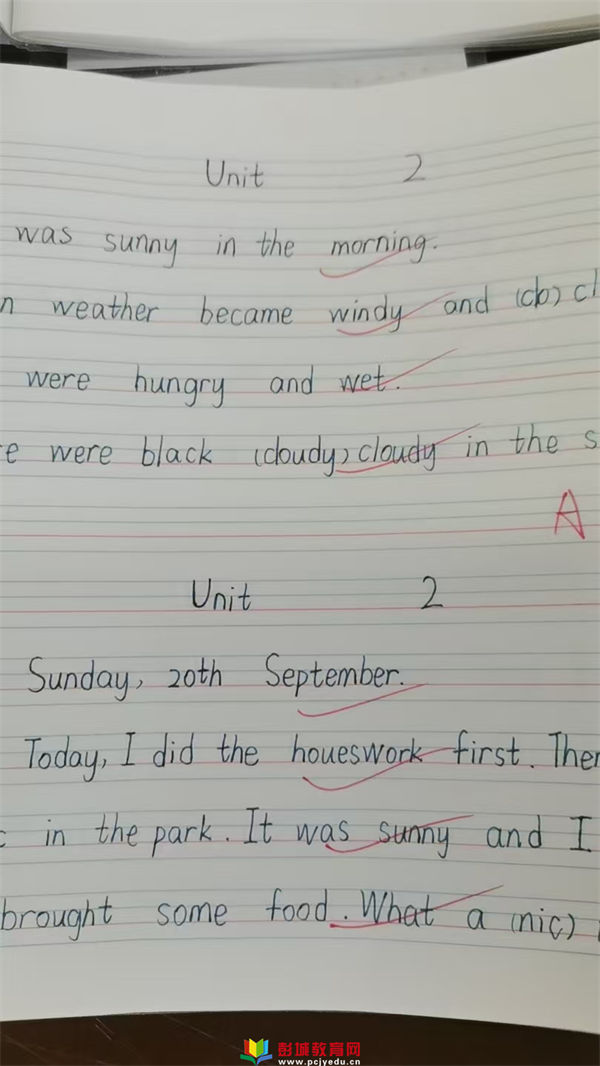 Unit 2
was sunny in the morning.
n weather became windy and (clo) cl
were hungry and wet.
e were black (cloudy) cloudy in the s
A
Unit 2
Sunday, 20th September.
Today, I did the houeswork first. Then
in the park. It was sunny and I
brought some food. What a (nic)
彭城教育网
www.pcjyedu.cn